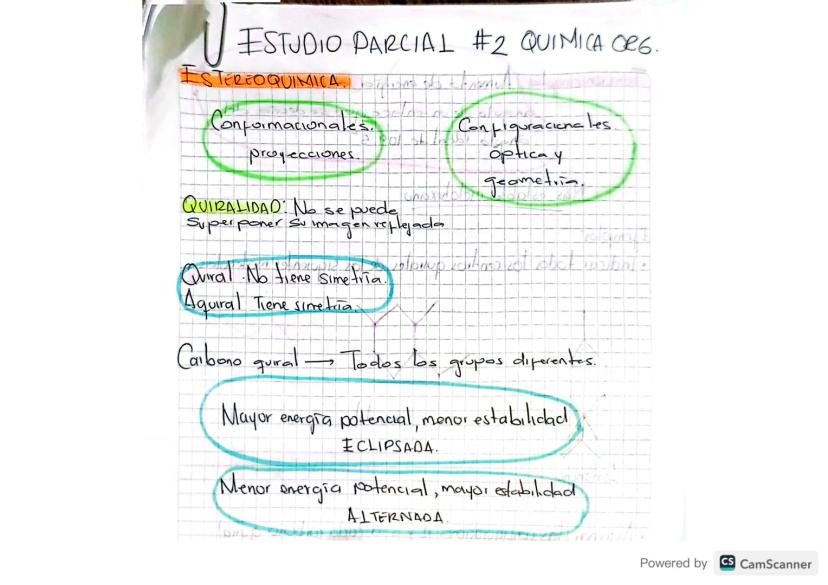 ESTUDIO PARCIAL #2 QUIMICA ORG.
ESTEREOQUIMICA.
Conformacionales.
proyecciones.
Configuracionales
óptica y
geometría.
QUIRALIDAD: No se puede
superponer su imagen reflejada
Quiral: No tiene simetría.
Aquiral Tiene simetría.
Carbono quiral → Todos los grupos diferentes.
Mayor energía potencial, menor estabilidad
ECLIPSADA.
Menor energía potencial, mayor estabilidad
ALTERNADA.
Powered by CS CamScanner